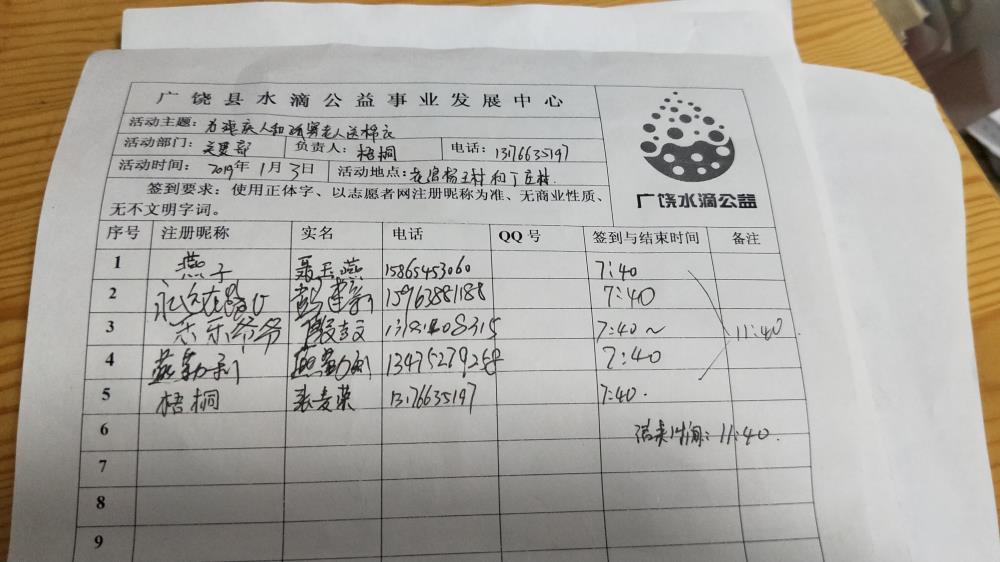 广饶县水滴公益事业发展中心
活动主题：为残疾人和孤寡老人送棉衣
活动部门： 负责人：梧桐 电话：13176635197
活动时间：2019年1月3日 活动地点：
签到要求：使用正体字、以志愿者网注册昵称为准、无商业性质、
无不文明字词。
广饶水滴公益
序号 注册昵称 实名 电话 QQ号 签到与结束时间 备注
1 燕子 聂玉燕 15865453060 7:40
2 永远在路上 15963881188 7:40
3 爷爷 7:40~ 11:40
4 燕勤新 燕勤新 13475279268 7:40
5 梧桐 13176635197 7:40.
6 结束时间：11:40.
7
8
9